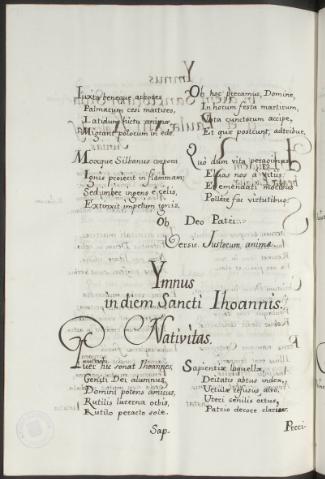 Iuxta beneque arbores
Palmarum cesi martires,
Latidum fictu anime
Migrant polorum in ede.
Moxque Silbanus corponi
Ignis proiecit in flammam;
Sed imber ingens e celis,
Extinxit impetum ignis.
Ob hoc precamus, Domine,
In horum festa martirum,
Vota cunctorum accipe,
Et que poscunt, adtribue,
Quo dum vita peragimus
Elisas nos a vitiis
Et emendati moribus
Pollere fac virtutibus.
Ob Deo Patri.
Versu. Justorum anime.
Ymnus
in diem Sancti Ihoannis
Nativitas.
Puer hic sonat Ihoannes,
Genisti Dei alumnus,
Domini potens amicus,
Rutilis lucerna orbis,
Rutilo peracto sole.
Sapientiæ loquella,
Deitatis abtus index,
Uteri senilis ortus,
Patrio decore clarior.
Sap.
Preci-